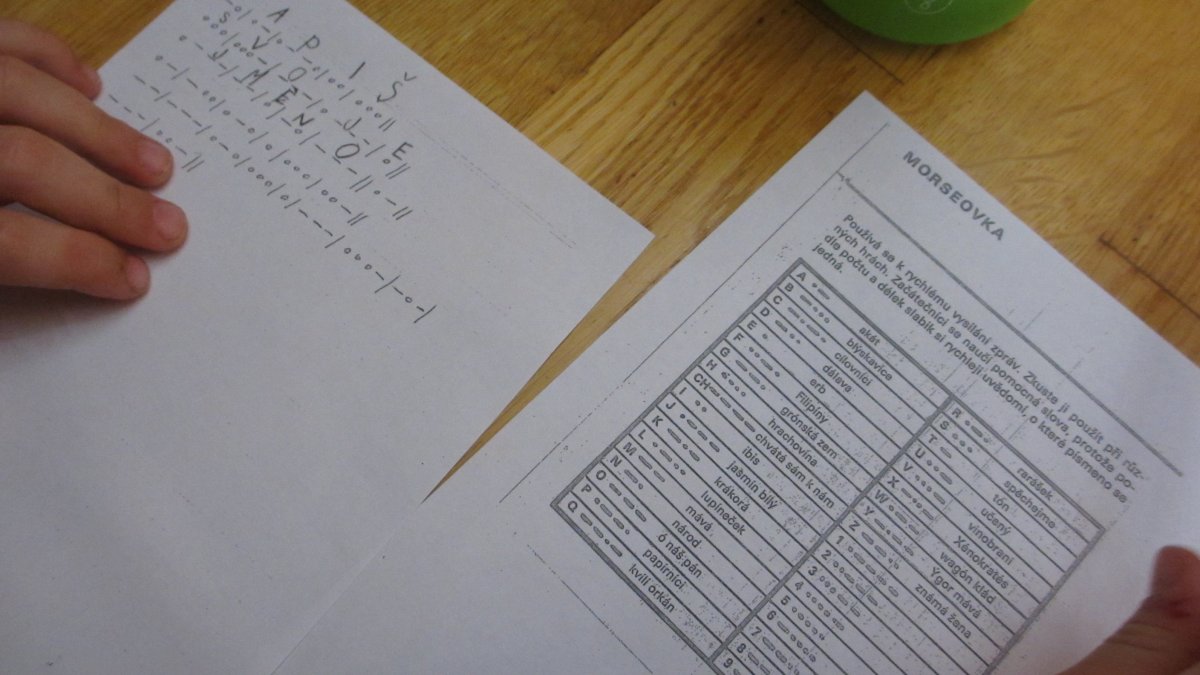 A P I Š
S V O J E
J M E N O
MORSEOVKA
Používá se k rychlému vysílání zpráv. Zkuste ji použít při růz-
ných hrách. Začátečníci se naučí pomocná slova, protože po-
dle počtu a délek slabik si rychleji uvědomí, o které písmeno se
jedná.
A .- akát
B -... blýskavice
C -.-. cílovníci
D -.. dálava
E . erb
F ..-. Filipíny
G --. grónská zem
H .... hrachovina
CH ---- chvátá sám k nám
I .. ibis
J .--- jasmín bílý
K -.- krákorá
L .-.. lupíneček
M -- mává
N -. národ
O --- ó náš pán
P .--. papírníci
Q --.- kvílí orkán
R .-. rarášek
S ... spěchejme
T - tón
U ..- učený
V ...- vinobraní
X -..- Xénokratés
W .-- wagón klád
Y -.-- Ygor mává
Z --.. známá žena
1 .----
2 ..---
3 ...--
4 ....-
5 .....
6 -....
7 --...
8
9